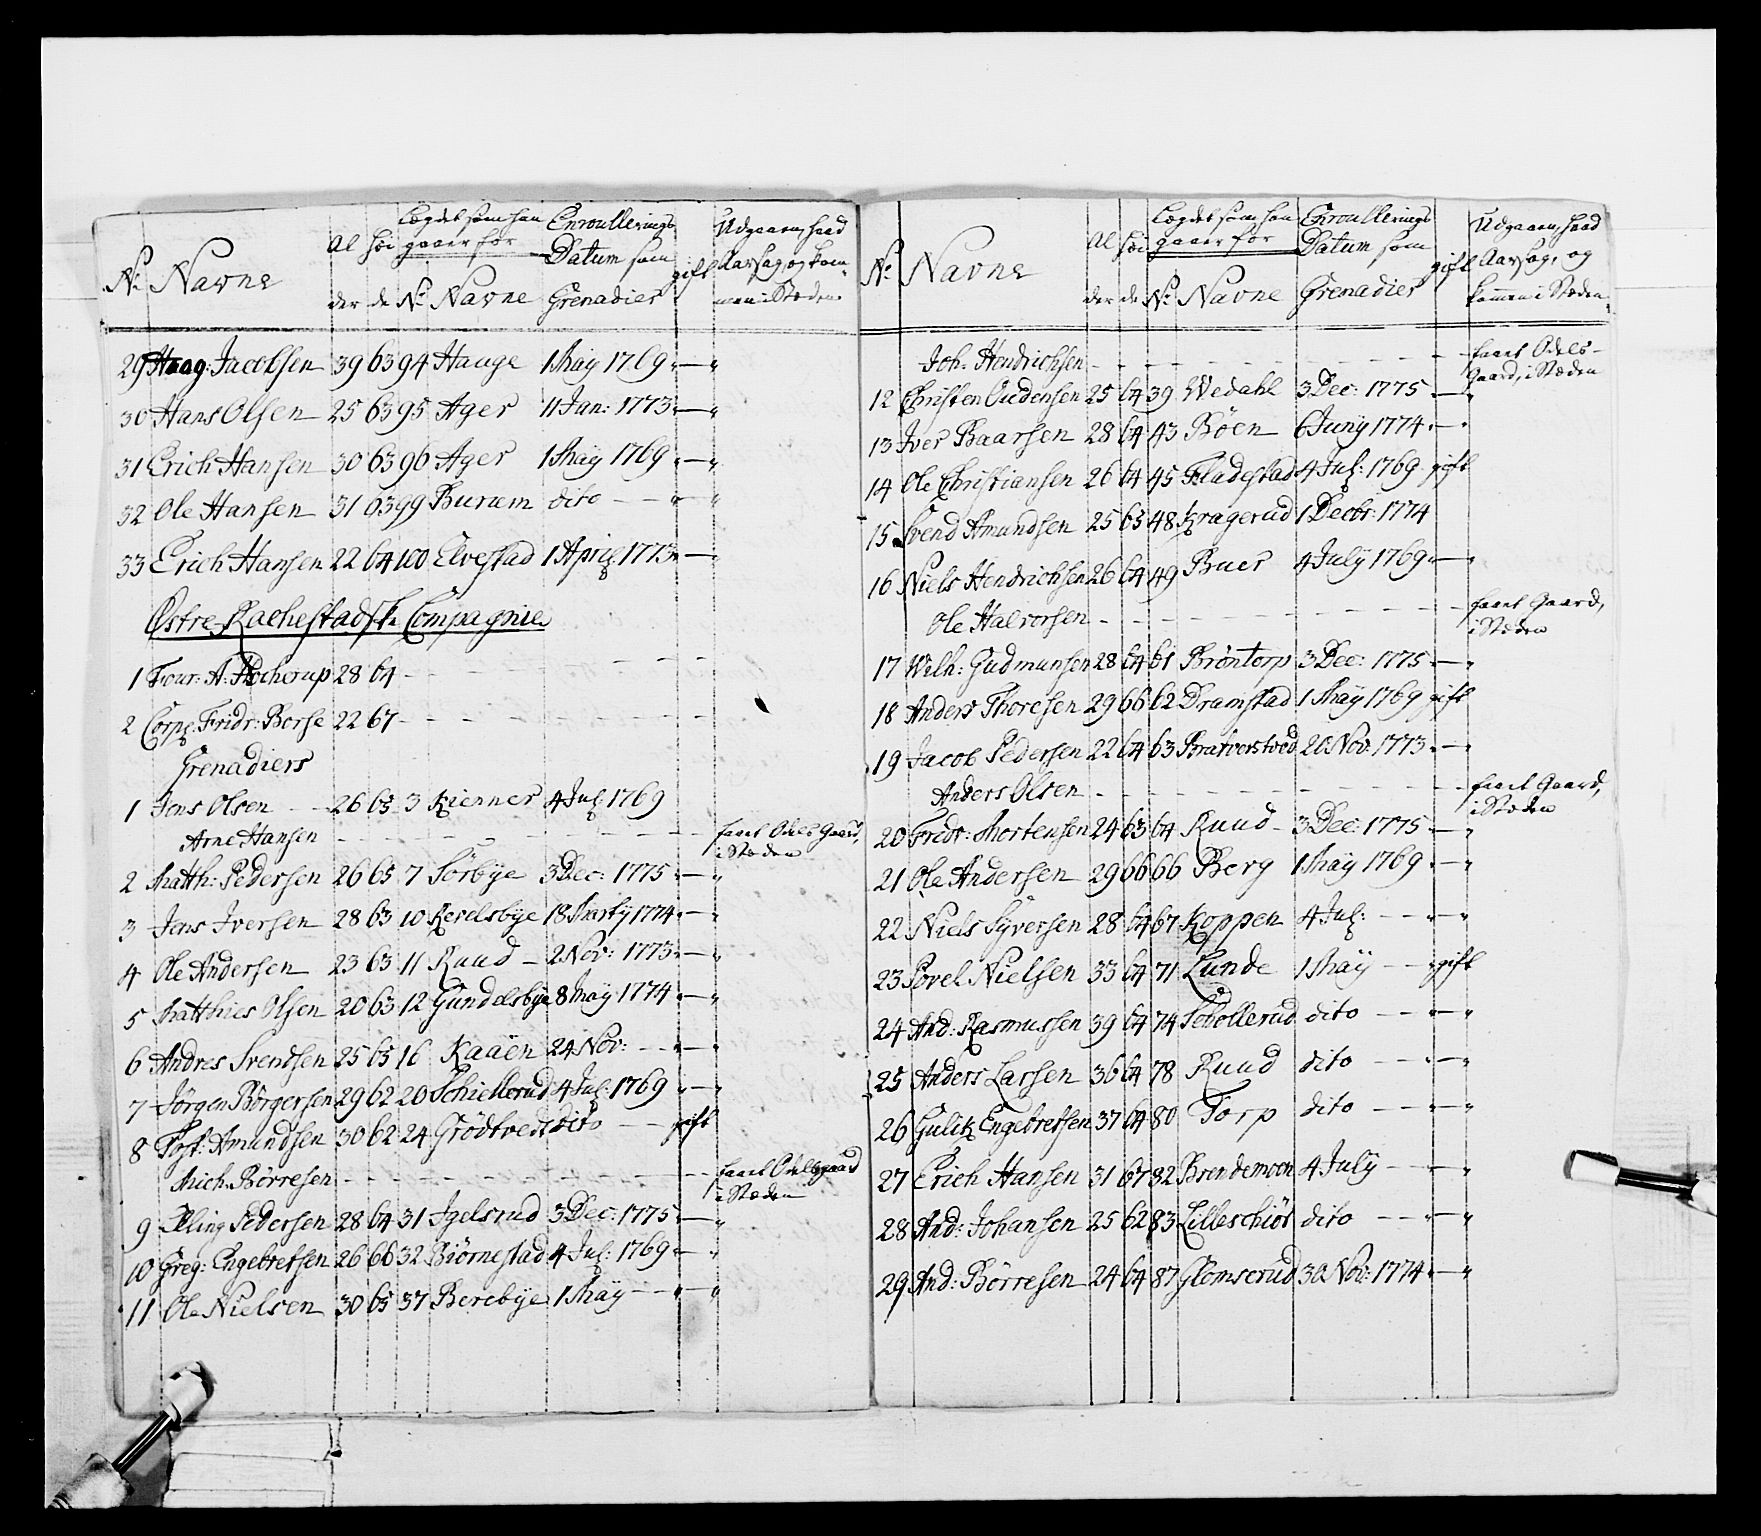 No Navne Al der Høi de Lægdet som han gaaer for No Navne Enroullerings Datum som Grenadier gift Udgaaen, hvad Aarsag og kommen i Stæden
29 Haag: Jacobsen 39 63 94 Hauge 1 May 1769 " — "
30 Hans Olsen 25 63 95 Ager 11 Jan: 1773 " — "
31 Erich Hansen 30 63 96 Ager 1 May 1769 " — "
32 Ole Hansen 31 63 99 Burum dito — — " "
33 Erich Hansen 22 64 100 Elvestad 1 April 1773 " — "
Østre Rachestadsk Compagnie
1 Four: A: 28 64 - - -
2 Corpl: Fridr: Borse 22 67 - - -
Grenadiers
1 Jens Olsen - - 26 63 3 Kienner 4 Jul: 1769
Arne Hansen - - - faaet Odels Gaard, i Stæden
2 Matth: Pedersen 26 65 7 Sörbye 3 Dec: 1775 " — "
3 Jens Iversen 28 63 10 Reselsbye 18 Marty 1774 " — "
4 Ole Andersen 23 63 11 Ruud — 2 Nov: 1773 " — "
5 Matthies Olsen 20 63 12 Gundelsbye 8 May 1774 " — "
6 Andres Svendsen 25 63 16 Kaaën 24 Nov: — — " — "
7 Jörgen Börgersen 29 62 20 Schiellerud 4 Jul: 1769 " — "
8 Tost: Amundsen 30 62 24 Grödtvedt dito — — gift
Mich: Börresen - - - faaet Odelsgaard i Stæden
9 Elling Pedersen 28 64 31 Igelsrud 3 Dec: 1775 " — "
10 Greg: Engebretsen 26 66 32 Biörnestad 4 Jul: 1769 " — "
11 Ole Nielsen 30 63 37 Berebye 1 May — — " "
No Navne Al der Høi de Lægdet som han gaaer for No Navne Enroullerings Datum som Grenadier gift Udgaaen, hvad Aarsag, og kommen i Stæden
Joh: Hendrichsen - - - faaet Odels-Gaard, i Stæden
12 Christen Oudensen 25 64 39 Wedahl 3 Dec: 1775 " — "
13 Iver Baarsen 28 64 43 Böen 6 Juny 1774 " — "
14 Ole Christiansen 26 64 45 Fladestad 4 Jul: 1769 gift
15 Svend Amundsen 25 63 48 Kragerud 1 Decbr: 1774
16 Niels Hendrichsen 26 64 49 Buer 4 July 1769 " — "
Ole Halvorsen - - - faaet Gaard, i Stæden
17 Wilh: Gudmunsen 28 64 61 Bröntorp 3 Dec: 1775 " — "
18 Anders Thoresen 29 66 62 Dramstad 1 May 1769 gift
19 Jacob Pedersen 22 64 63 Bratverstved 20 Nov: 1773 " — "
Anders Olsen - - - faaet Gaard, i Stæden
20 Fridr: Mortensen 24 63 64 Ruud — 3 Dec: 1775 " — "
21 Ole Andersen 29 66 66 Berg 1 May 1769 " — "
22 Niels Syversen 28 64 67 Koppen 4 Jul: — — " — "
23 Povel Nielsen 33 64 71 Lunde 1 May — — " gift
24 And: Rasmussen 39 64 74 Schollerud dito — — " — "
25 Anders Larsen 36 64 78 Ruud dito — — " — "
26 Gulik Engebretsen 37 64 80 Torp dito — — " — "
27 Erich Hansen 31 67 82 Brendemoen 4 July — — " — "
28 And: Johansen 25 62 83 Lilleschiöt dito — — " — "
29 And: Börresen 24 64 87 Glomserud 30 Nov: 1774 " — "